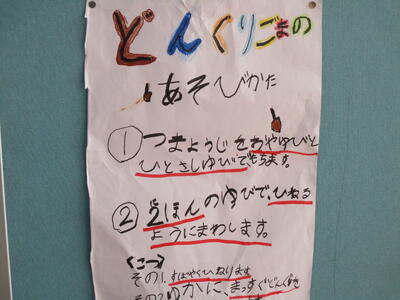 どんぐりごまの
あそびかた
① つまようじをおやゆびと
ひとさしゆびで、もちます。
② 2ほんのゆびで、ひねる
ようにまわします。
<こつ>
その1. すばやくひねります。
その2 ゆかに、まっすぐどんぐりを